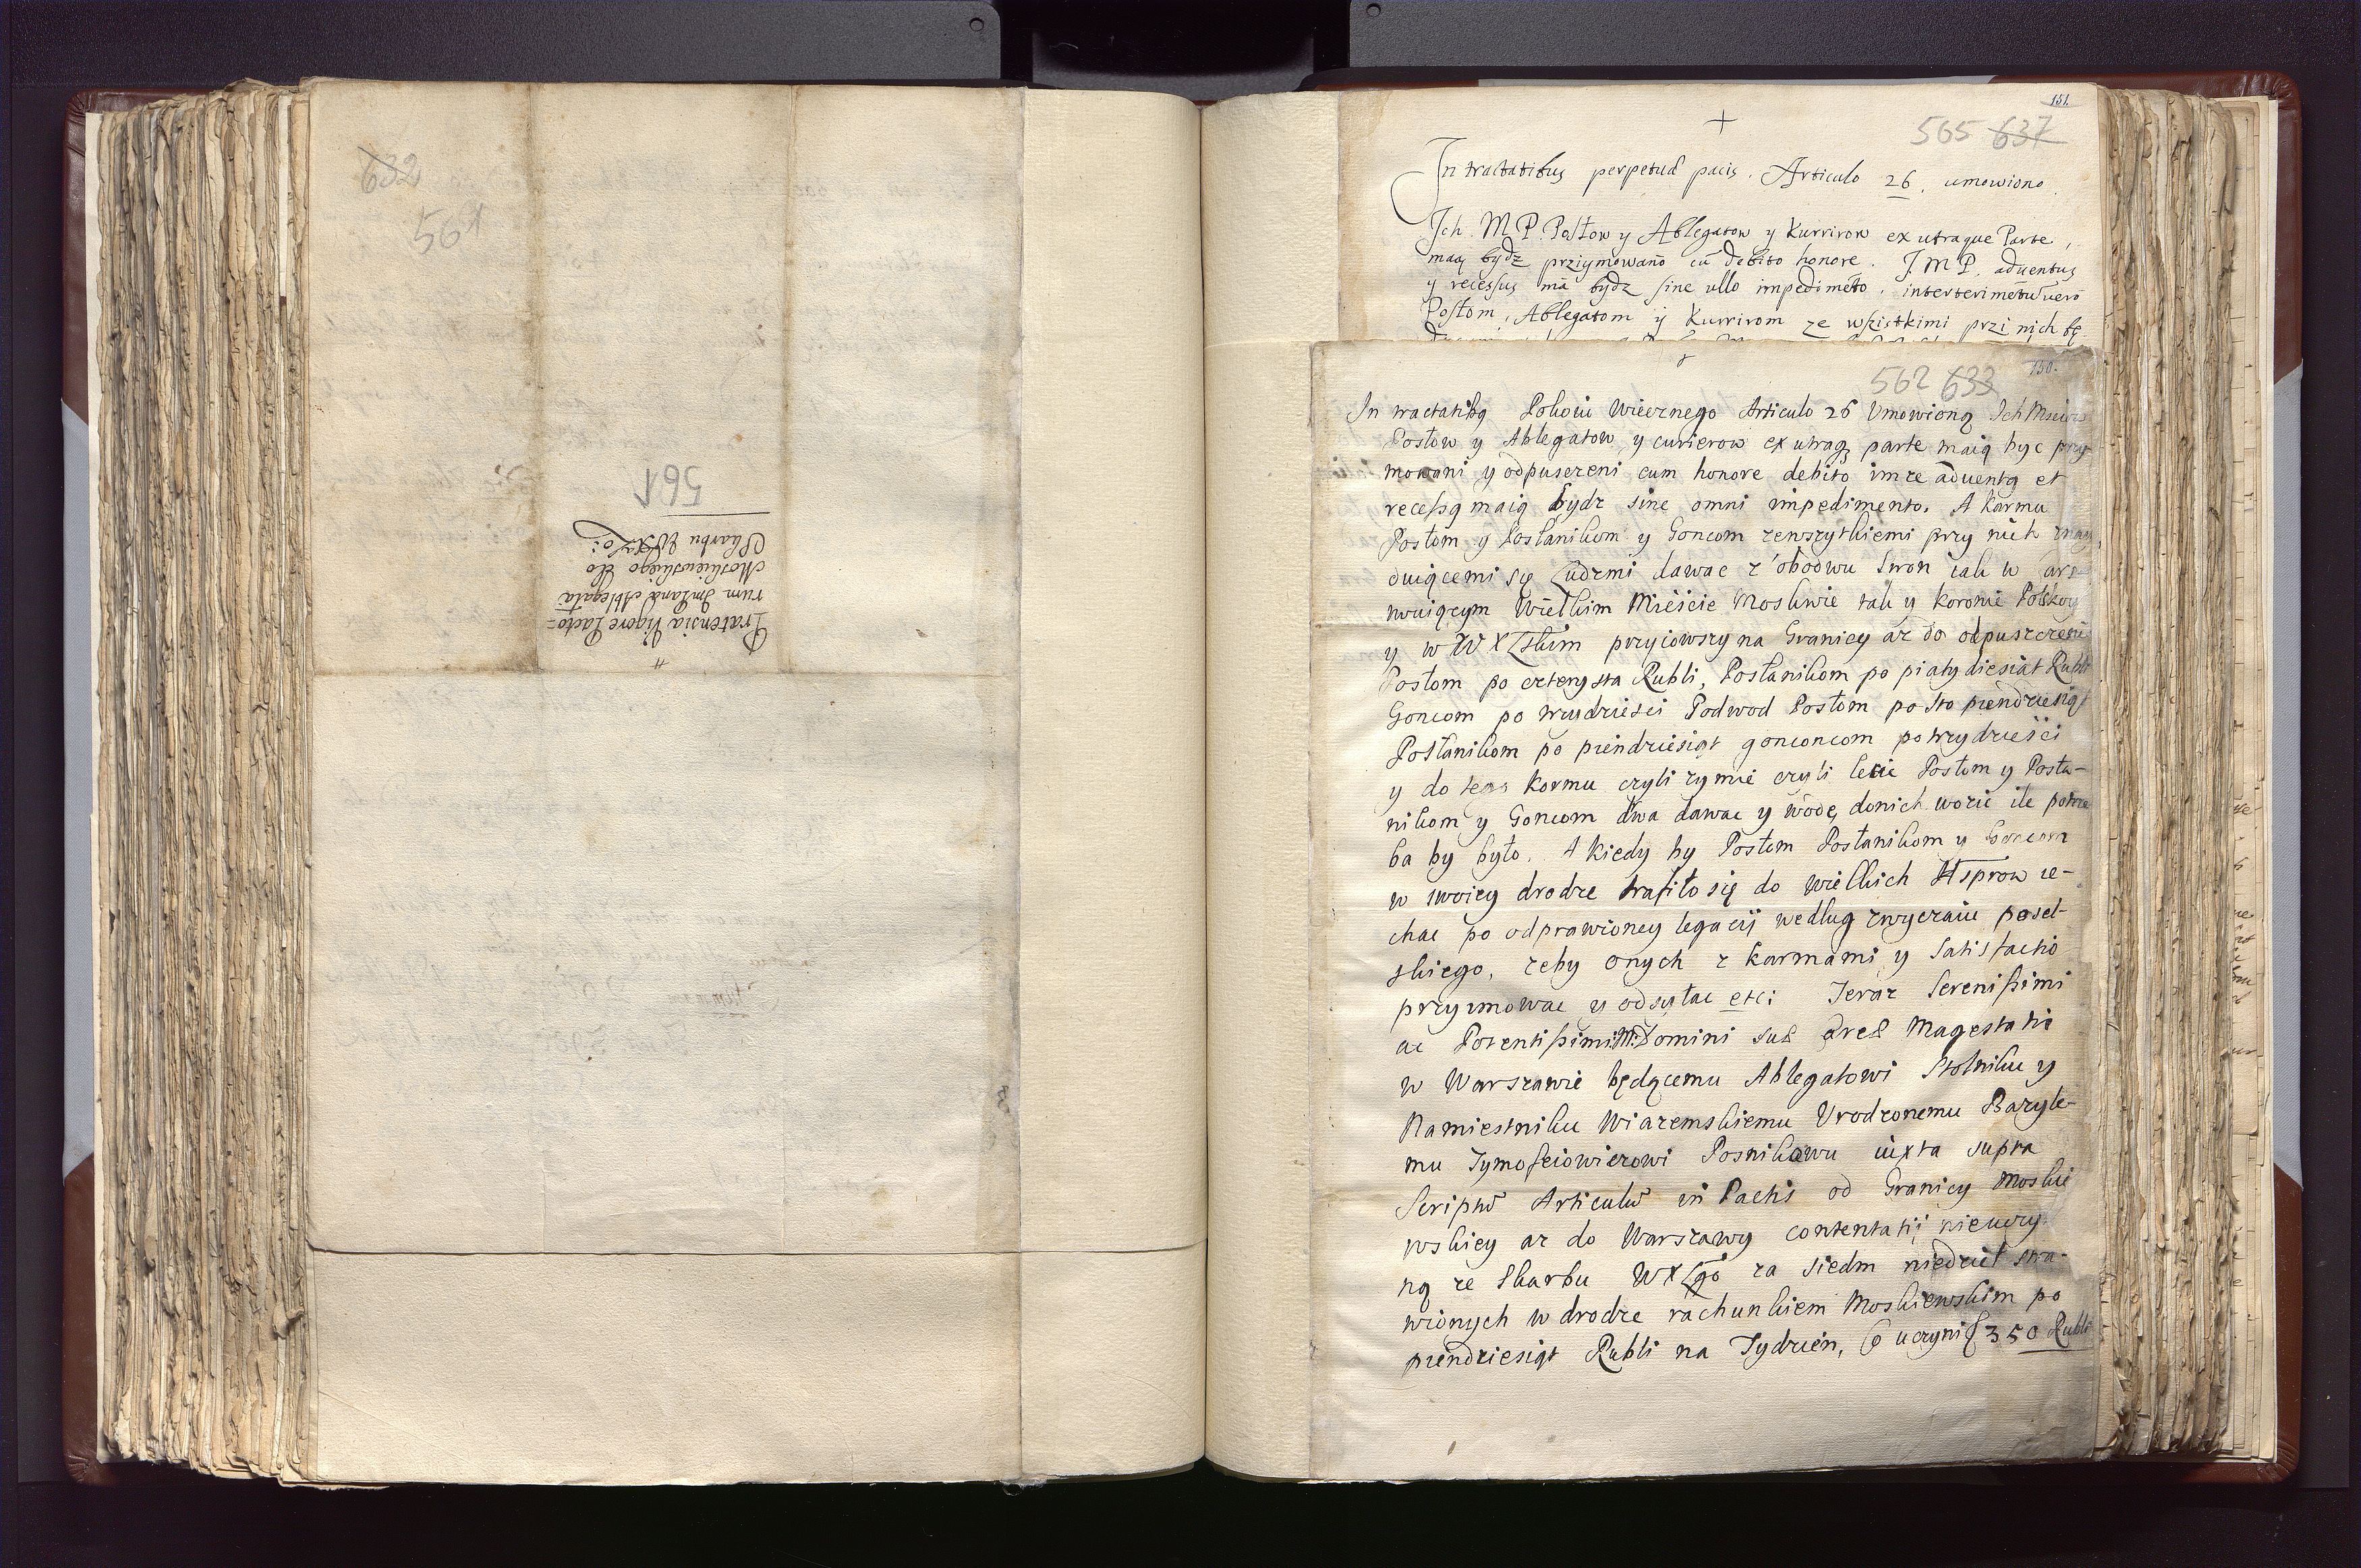 632
561
561
#
Prætensia Vigore Pacto=
rum Imᵖana Ablegata
Moskiewskiego do
Skarbu WXLoi
151.
+
565 637
In tractatibus perpetuæ pacis. Articulo 26. umowiono
Ich M P. Posłow y Ablegatow y Kurrirow ex utraque Parte,
maią bydz prziymowano cū debito honore. I. M P. adventus
y recessus ma bydz sine ullo impedimēto. interterimētū uero
Posłom, Ablegatom y Kurrirom ze wszistkimi przi nich bę
150.
562 633
In tractatibq Pokoiu Wiecznego Articulo 26 Vmowionq Ich
Posłow y Ablegatow y curierow ex utraq parte maią byc przy
mowani y odpuszczeni cum honore debito im ze adventq et
recessq maią bydz sine omni impedimento. A Karmu
Posłom y Posłanikom y Goncom zewszytkiemi przy nich znay
duiącemi się Ludzmi dawac z obodwu Stron iak w
Wielkim Mieście Moskwie tak y Koronie Polskoy
y w W X Lskim przyiowszy na Granicy az do odpuszczeniu
Posłom po czterysta Rubli, Posłanikom po piatydiesiat Rubli
Goncom po trzydziesci Podwod Posłom po sto piendziesiąt
Posłanikom po piendziesiąt gonconcom po trzydzieści
y do tego Kormu czyli zymie czyli lecie Posłom y Posła-
nikom y Goncom dwa dawac y wodę donich wozic ile potrze
ba by było. A kiedy by Posłom Posłanikom y Goncom
w swoiey drodze trafiło się do wielkich Hsprow ie-
chac po odprawioney legacij według zwyczaiu posel-
skiego, zeby onych z karmami y Satisfactio
przyimowac y odsyłac etc: Teraz Serenissimi
ac Potentissimi M: Domini suæ Magestatis
w Warszawie będącemu Ablegatowi Stolniku y
Namiestniku Wiazemskiemu Vrodzonemu Bazyle-
mu Tymofeiowiczowi Posnikowu iuxta supra
Scriptū Articulū in Pactis od Granicy Moskie
wskiey az do Warszawy contentatij nieuczy
nq ze Skarbu WXLgo za siedm niedziel stra-
wionych w drodze rachunkiem Moskiewskim po
piendziesiąt Rubli na Tydzien, co uczynił 350 Rubli